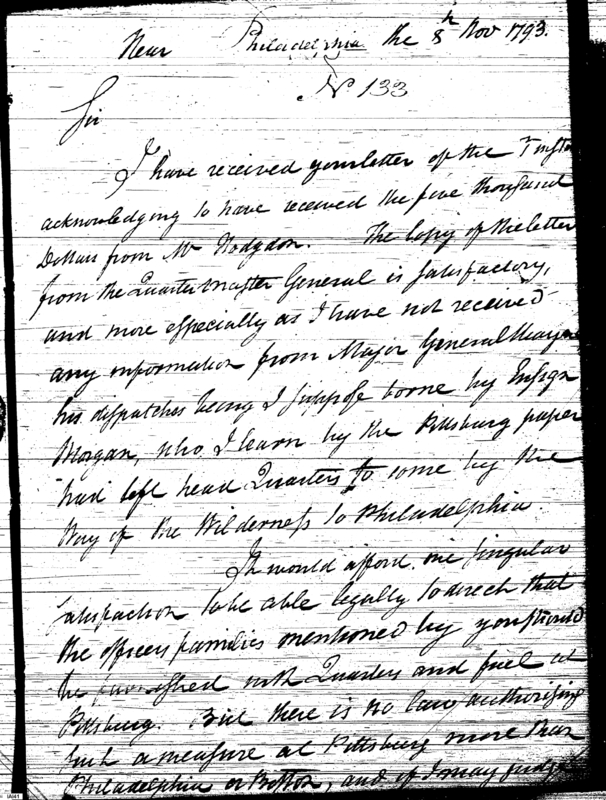 Near Philadelphia the 8h Nov 1793.
No 133
Sir
I have received your letter of the
acknowledging to have received the five thousand
Dollars from Mr Hodgdon. The Copy of the letter
from the Quarter Master General is satisfactory,
and more especially as I have not received
any information from Major General Wayne
his dispatches being I suppose borne by Ensign
Morgan, who I learn by the Pittsburg paper
had left head Quarters to come by the
Way of the Wilderness to Philadelphia.
It would afford me singular
satisfaction to be able legally to direct that
the officers families mentioned by you should
be furnished with Quarters and fuel at
Pittsburg. But there is no law authorising
such a measure at Pittsburg more than
Philadelphia or Boston, and if I may judge